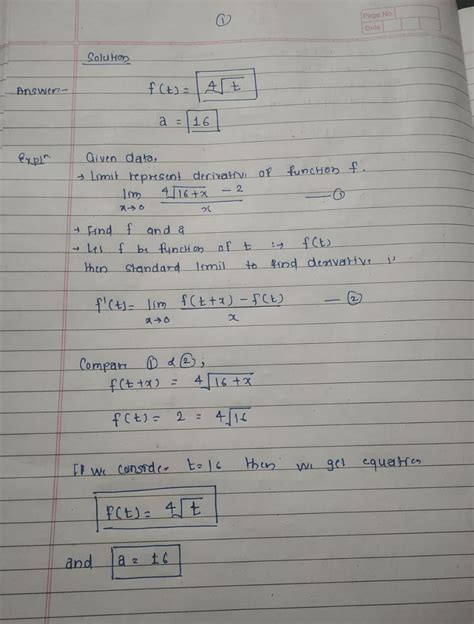 ①
Page No.
Date
Solution
Answer:-
f(t) = ∜t
a = 16
Expln
Given data,
→ Limit represent derivative of function f.
lim x→0 (∜16+x - 2)/x —①
→ Find f and a
→ Let f be function of t :→ f(t)
then standard limit to find derivative is
f'(t) = lim x→0 (f(t+x) - f(t))/x —②
Compare ① & ②,
f(t+x) = ∜16+x
f(t) = 2 = ∜16
If we consider t=16 then we get equation
f(t) = ∜t
and a = 16